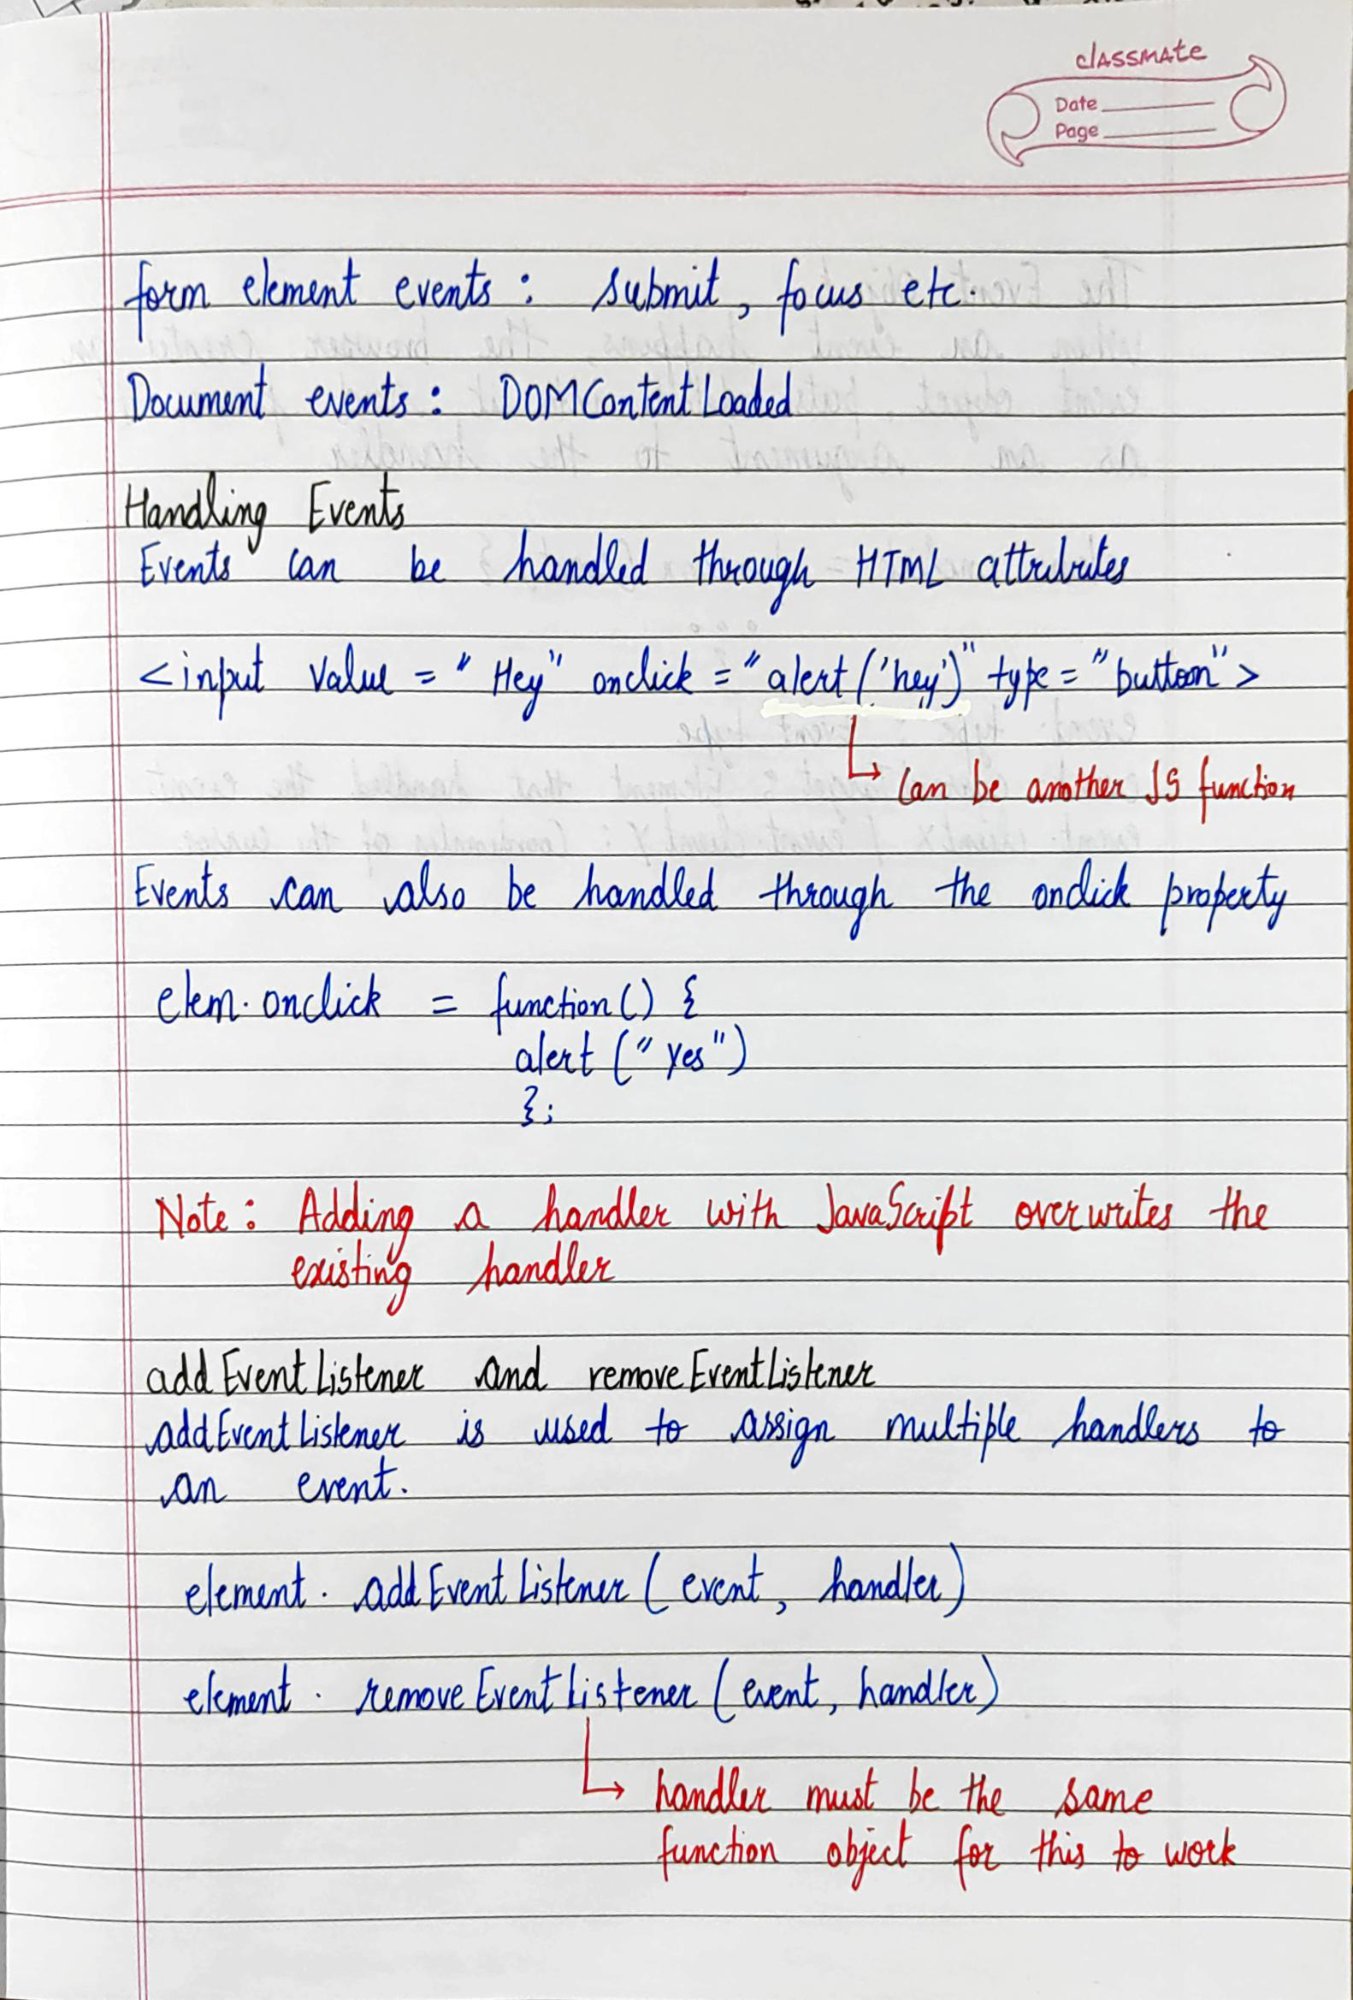 classmate
Date
Page
form element events : submit, focus etc.
Document events : DOMContentLoaded
Handling Events
Events can be handled through HTML attributes
<input value = "Hey" onclick = "alert('hey')" type = "button">
can be another JS function
Events can also be handled through the onclick property
elem.onclick = function() {
alert("yes")
};
Note : Adding a handler with JavaScript overwrites the
existing handler
addEventListener and removeEventListener
addEventListener is used to assign multiple handlers to
an event.
element.addEventListener(event, handler)
element.removeEventListener(event, handler)
handler must be the same
function object for this to work